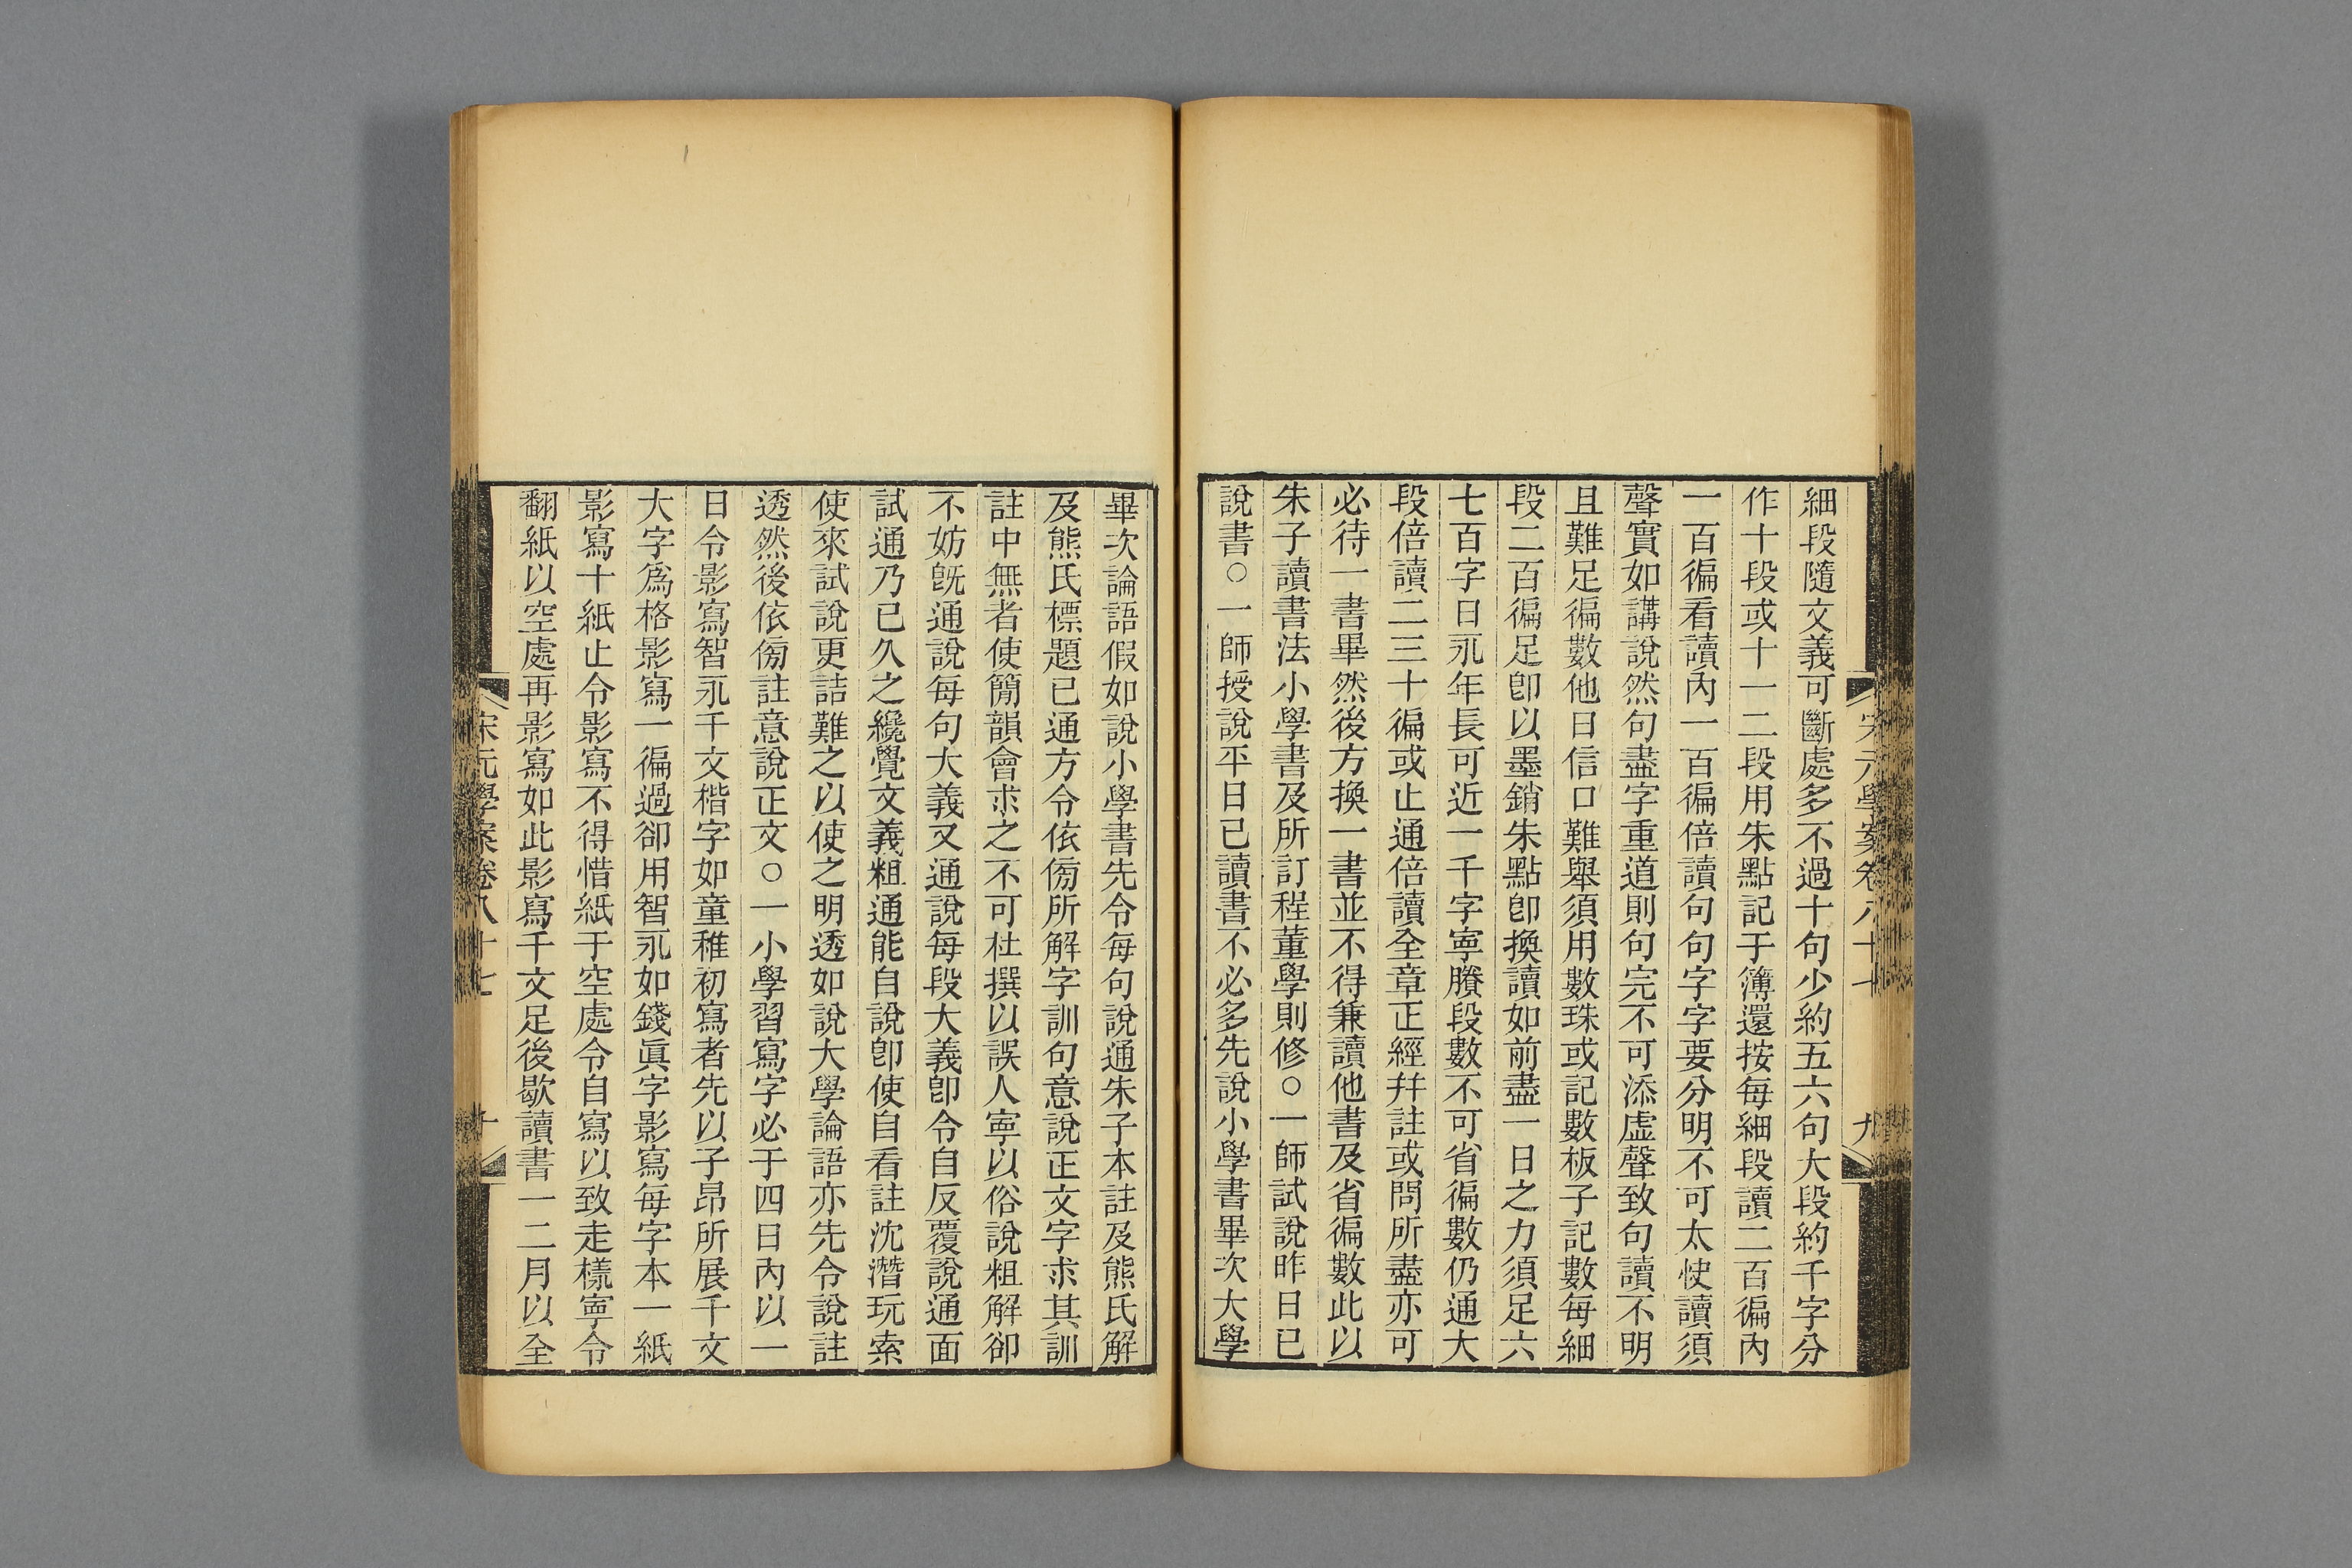 細段隨文義可斷處多不過十句少約五六句大段約千字分
作十段或十一二段用朱點記于簿還按每細段讀二百徧內
一百徧看讀內一百徧倍讀句句字字要分明不可太快讀須
聲實如講說然句盡字重道則句完不可添虛聲致句讀不明
且難足徧數他日信口難舉須用數珠或記數板子記數每細
段二百徧足卽以墨銷朱點卽換讀如前盡一日之力須足六
七百字日永年長可近一千字寧賸段數不可省徧數仍通大
段倍讀二三十徧或止通倍讀全章正經幷註或問所盡亦可
必待一書畢然後方換一書並不得兼讀他書及省徧數此以
朱子讀書法小學書及所訂程董學則修○一師試說昨日已
說書○一師授說平日已讀書不必多先說小學書畢次大學
宋元學案卷八十七
九
畢次論語假如說小學書先令每句說通朱子本註及熊氏解
及熊氏標題已通方令依傍所解字訓句意說正文字求其訓
註中無者使簡韻會求之不可杜撰以誤人寧以俗說粗解卻
不妨旣通說每句大義又通說每段大義卽令自反覆說通面
試通乃已久之纔覺文義粗通能自說卽使自看註沈潛玩索
使來試說更詰難之以使之明透如說大學論語亦先令說註
透然後依傍註意說正文○一小學習寫字必于四日內以一
日令影寫智永千文楷字如童稚初寫者先以子昂所展千文
大字爲格影寫一徧過卻用智永如錢眞字影寫每字本一紙
影寫十紙止令影寫不得惜紙于空處令自寫以致走樣寧令
翻紙以空處再影寫如此影寫千文足後歇讀書一二月以全
宋元學案卷八十七
十